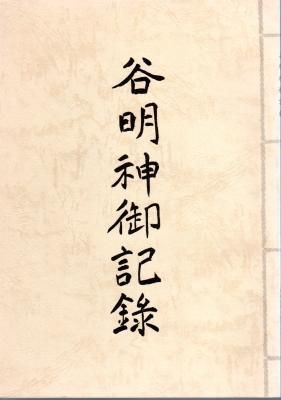 谷明神御記錄